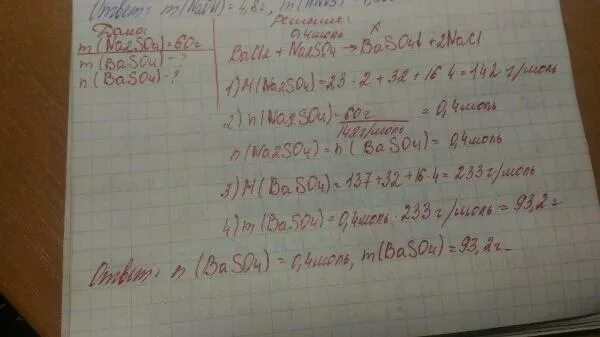 Ответ: m(NaOH)=4,8г, m(HNO3)
Дано:
m(Na2SO4)=60г
m(BaSO4)-?
n(BaSO4)-?
Решение:
0,4моль x
BaCl2 + Na2SO4 → BaSO4↓ + 2NaCl
1) M(Na2SO4)=23·2+32+16·4=142 г/моль
2) n(Na2SO4)=60г/142г/моль = 0,4моль
n(Na2SO4)=n(BaSO4)=0,4моль
3) M(BaSO4)=137+32+16·4=233г/моль
4) m(BaSO4)=0,4моль·233г/моль=93,2г
Ответ: n(BaSO4)=0,4моль, m(BaSO4)=93,2г